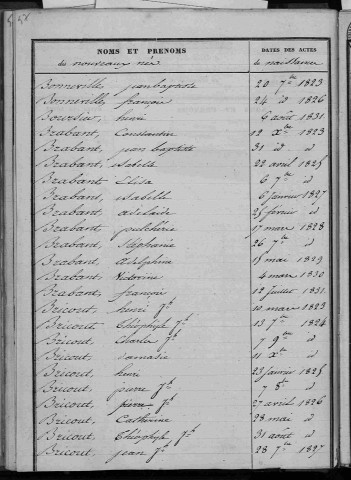 NOMS ET PRENOMS
DATES DES ACTES
de nouveaux nés
de naissance
Bonneville, jean baptiste 20 7bre 1823
Bonneville, françois 24 d 1826
Boursier, henri 6 août 1831
Brabant, Constantin 12 Xbre 1823
Brabant, jean baptiste 31 d d
Brabant, isabelle 22 avril 1825
Brabant, Elisa 6 7bre d
Brabant, isabelle 6 janvier 1827
Brabant, adelaide 25 fevrier d
Brabant, pulcherie 17 mars 1828
Brabant, Stéphanie 26 7bre d
Brabant, adelphine 18 mai 1829
Brabant, Victorine 4 mars 1830
Brabant, françois 12 juillet 1831
Bricout, henri fs 10 mars 1823
Bricout, Théophyle fs 13 7bre 1824
Bricout, Charles fs 7 9bre d
Bricout, 11 Xbre d
Bricout, henri 23 janvier 1825
Bricout, pierre fs 7 8bre d
Bricout, pierre fs 27 avril 1826
Bricout, Catherine 28 mai d
Bricout, Théophyle fs 31 août d
Bricout, jean fs 28 7bre 1827